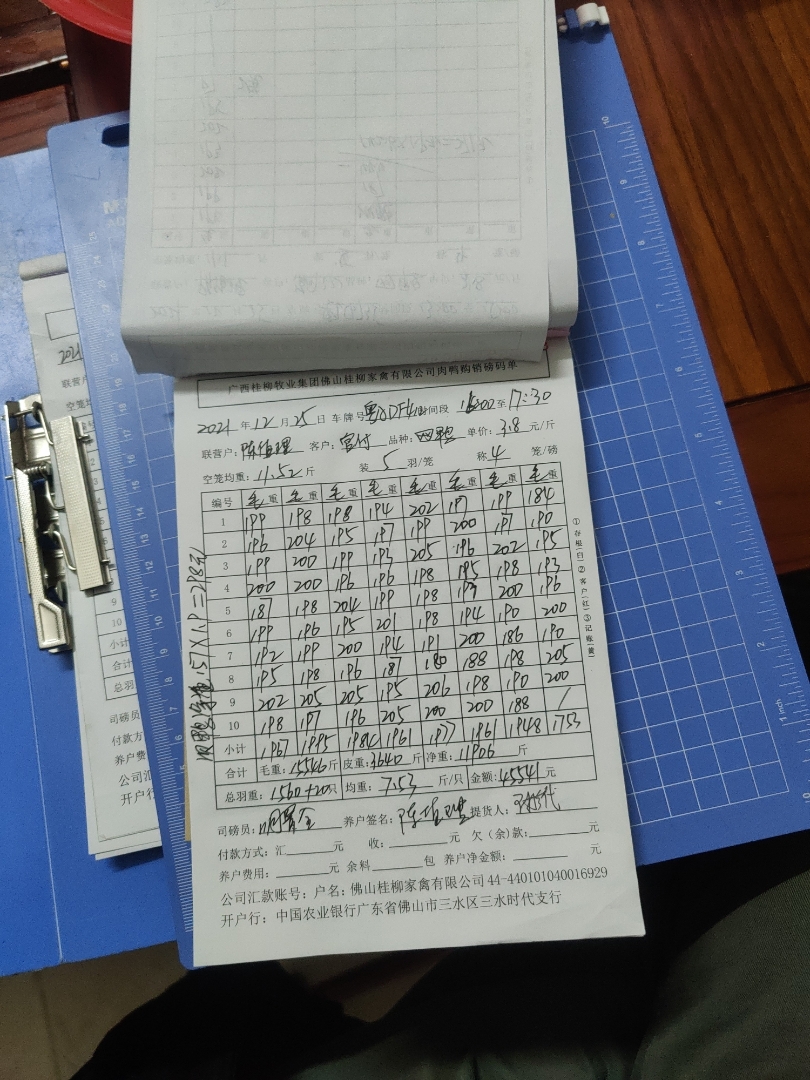 广西桂柳牧业集团佛山桂柳家禽有限公司肉鸭购销磅码单
2021 年 12 月 25 日 车牌号 时间段 至 17:30
联营户: 客户: 品种: 单价: 3.8 元/斤
空笼均重: 11.52 斤 装 5 羽/笼 称 4 笼/磅
编号 毛重 毛重 毛重 毛重 毛重 毛重 毛重 毛重
1 199 198 198 194 202 197 199 184
2 196 204 195 197 199 200 197 190
3 199 200 199 193 205 196 202 195
4 200 200 196 196 198 195 198 193
5 187 198 204 199 198 200 196
6 199 196 195 201 198 194 190 200
7 192 199 200 194 191 200 186 190
8 195 198 196 187 180 188 198 205
9 202 205 205 195 206 198 190 200
10 198 197 196 205 200 200 188 /
小计 1967 1995 1961 1977 1961 1948 1753
合计 毛重: 15546 斤 皮重: 3640 斤 净重: 11906 斤
总羽重: 1560+20 只 均重: 7.53 斤/只 金额: 45541 元
司磅员: 养户签名: 提货人:
付款方式: 汇 元 收: 元 欠(余)款: 元
养户费用: 元 余料 包 养户净金额: 元
公司汇款账号: 户名: 佛山桂柳家禽有限公司 44-440101040016929
开户行: 中国农业银行广东省佛山市三水区三水时代支行
①存根(白)②客户(红)③记账(黄)
2021
联营户
空笼均
9
10
小计
合计
总羽
司磅员
付款方
养户费
公司汇
开户行